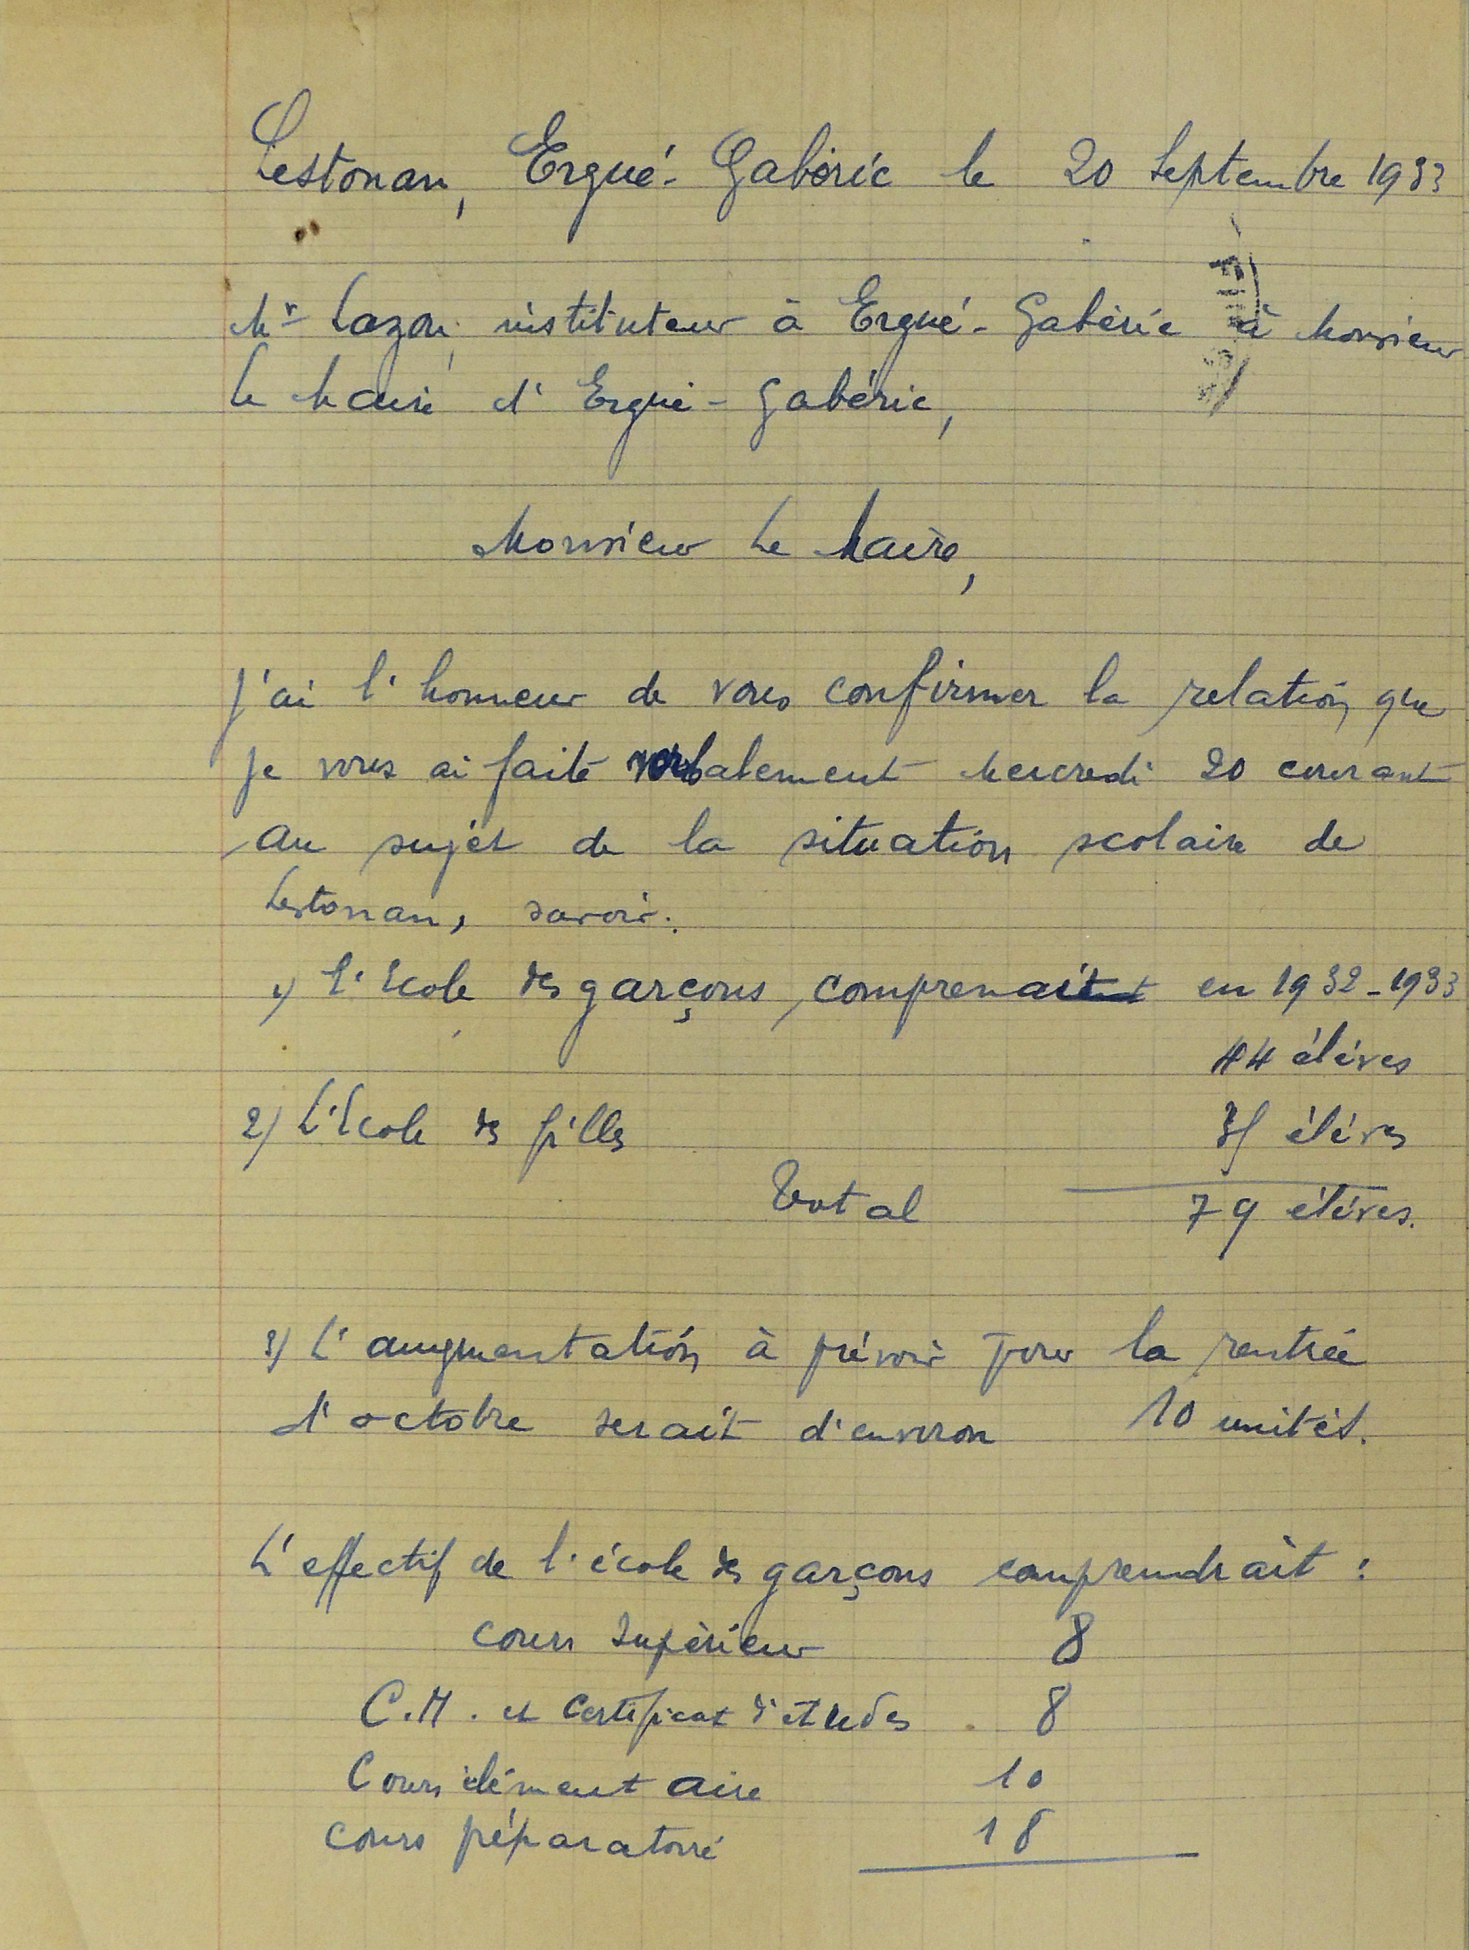 Lestonan, Ergué-Gabéric le 20 Septembre 1933
Mr Lazou, instituteur à Ergué-Gabéric à Monsieur
le Maire d'Ergué-Gabéric,
Monsieur Le Maire,
J'ai l'honneur de vous confirmer la relation que
je vous ai faite verbalement Mercredi 20 courant
au sujet de la situation scolaire de
Lestonan, savoir:
1) L'Ecole des garçons comprenait en 1932-1933
44 élèves
2) L'Ecole des filles 35 élèves
Total 79 élèves.
3) L'augmentation à prévoir pour la rentrée
d'octobre serait d'environ 10 unités.
L'effectif de l'école des garçons comprendrait :
Cours Supérieur 8
C.M. et Certificat d'études 8
Cours élémentaire 10
Cours préparatoire 18